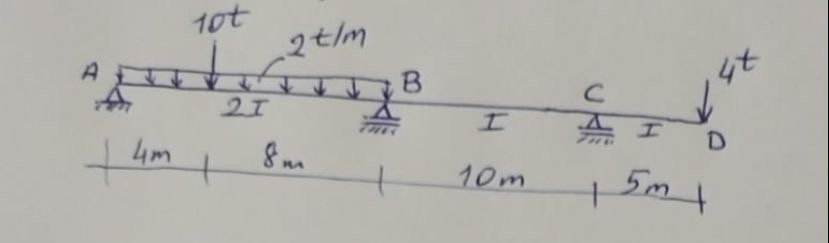 10t
2t/m
A
B
C
4t
2I
I
I
D
4m
8m
10m
5m